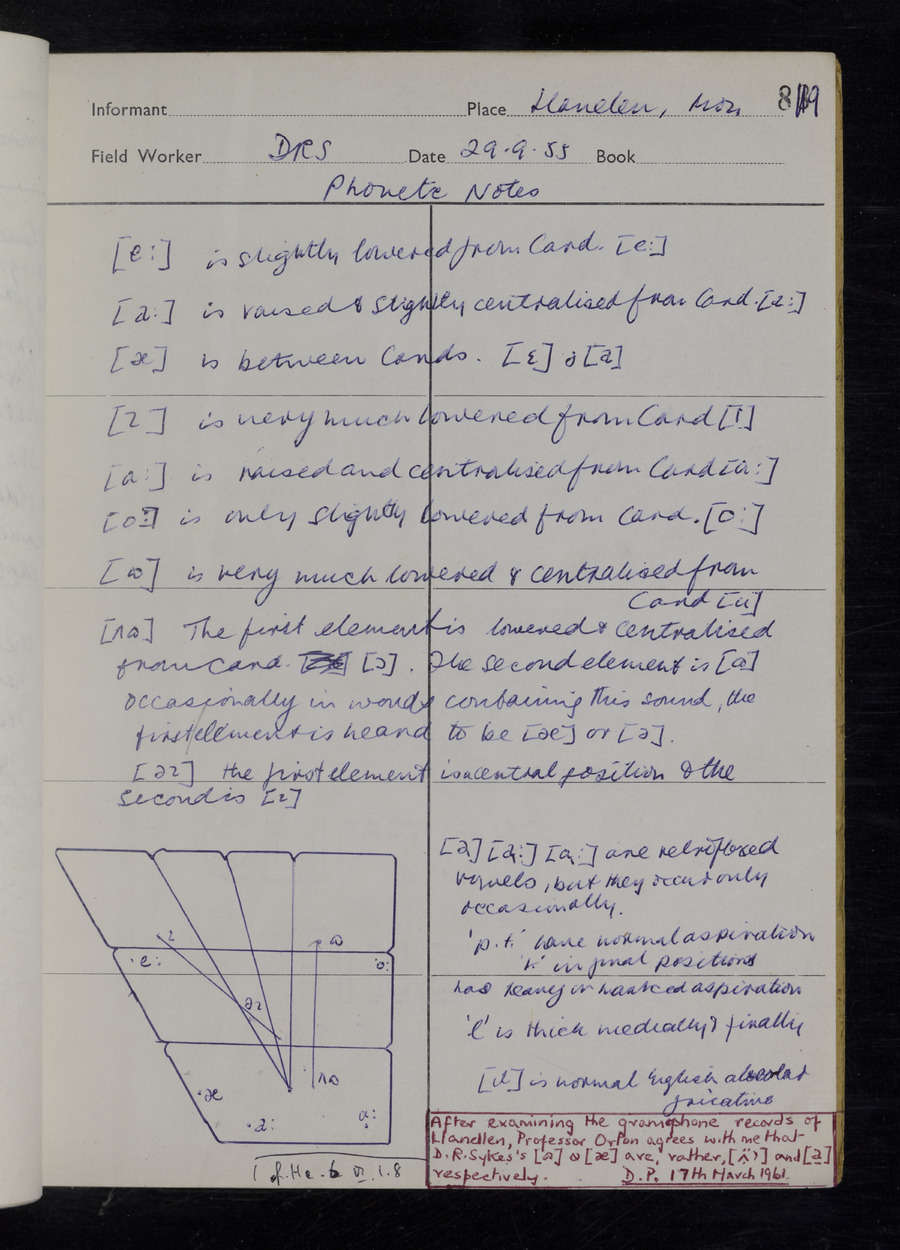 Informant Place Llanellen, Mon 8
Field Worker DRS Date 29.9.55 Book
Phonetic Notes
[e:] is slightly lowered from Card. [e:]
[a:] is raised & slightly centralised from Card. [a:]
[æ] is between Cards. [ɛ] & [a]
[ɩ] is very much lowered from Card [i]
[ɑ:] is raised and centralised from Card [ɑ:]
[o:] is only slightly lowered from Card. [o:]
[ɷ] is very much lowered & centralised from
Card [u]
[ʌɷ] The first element is lowered & centralised
from Card. [ɔ]. The second element is [ɷ]
occasionally in words containing this sound, the
first element is heard to be [əe] or [ə].
[əɩ] the first element is a central position & the
second is [ɩ]
[ə] [a:] [ɑ:] are retroflexed
vowels, but they occur only
occasionally.
'p.t.' have normal aspiration
'k' in final positions
has heavy or marked aspiration
'l' is thick medially & finally
[ɹ] is normal English alveolar
fricative
ɩ ɷ
e: o:
əɩ
æ ʌɷ
a: ɑ:
1.8
After examining the gramophone records of
Llanellen, Professor Orton agrees with me that
D.R. Sykes's [a] & [æ] are, rather, and [a]
respectively. D.P. 17th March 1961.